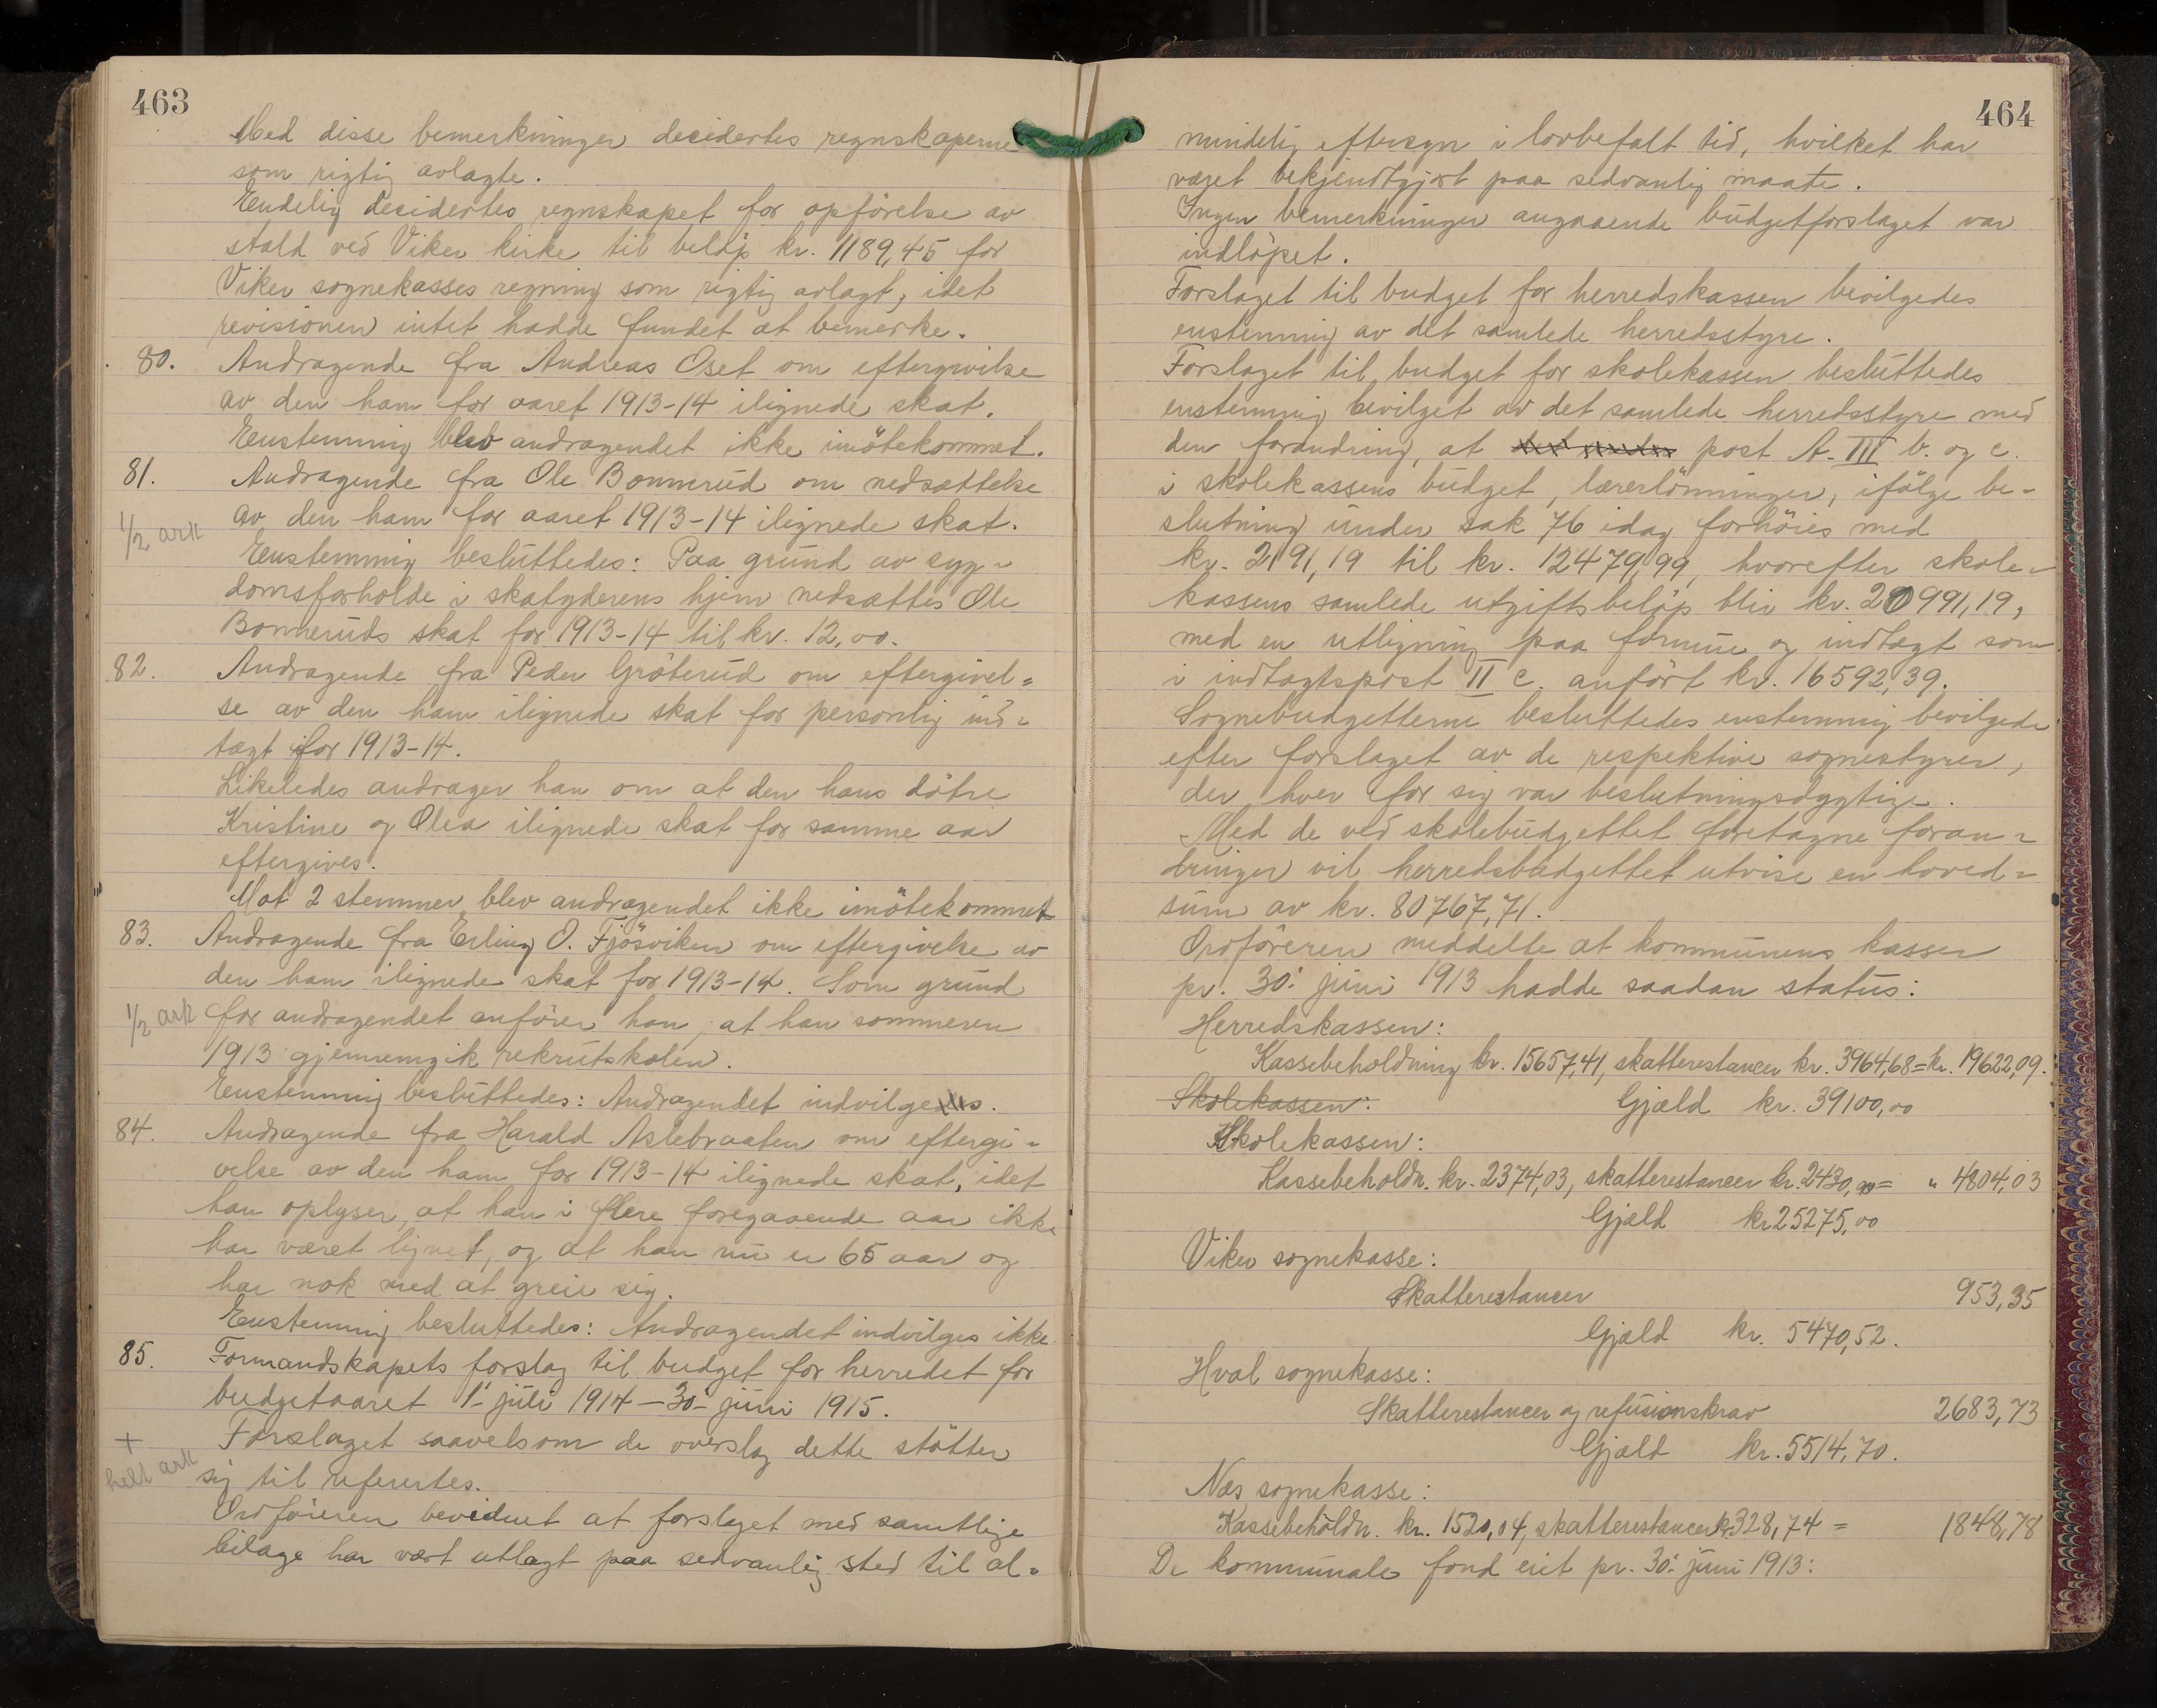 463
Med disse bemerkninger decidertes regnskaperne
som rigtig avlagte.
Endelig decidertes regnskapet for opförelse av
stald ved Viker kirke til beløp kr. 1189,45 for
Viker sognekasses regning som rigtig avlagt, idet
revisionen intet hadde fundet at bemerke.
80. Andragende fra Andreas Oset om eftergivelse
av den ham for aaret 1913-14 ilignede skat.
Enstemmig blev andragendet ikke imötekommet.
81. Andragende fra Ole Bonnerud om nedsættelse
av den ham for aaret 1913-14 ilignede skat.
1/2 ark
Enstemmig besluttedes: Paa grund av syg-
domsforholde i skatyderens hjem nedsættes Ole
Bonneruds skat for 1913-14 til kr. 12,00.
82. Andragende fra Peder Gröterud om eftergivel-
se av den ham ilignede skat for personlig ind-
tægt for 1913-14.
Likeledes andrager han om at den hans dötre
Kristine og Olea ilignede skat for samme aar
eftergives.
Mot 2 stemmer blev andragendet ikke imötekommet
83. Andragende fra Erling O. Fjösviken om eftergivelse av
den ham ilignede skat for 1913-14. Som grund
1/2 ark for andragendet anfører han, at han sommeren
1913 gjennemgik rekrutskolen.
Enstemmig besluttedes: Andragendet indvilges.
84. Andragende fra Harald Aslebraaten om eftergi-
velse av den ham for 1913-14 ilignede skat, idet
han oplyser, at han i flere foregaaende aar ikke
har været lignet, og at han nu er 65 aar og
har nok med at greie sig.
Enstemmig besluttedes: Andragendet indvilges ikke
85. Formandskapets forslag til budget for herredet for
budgetaaret 1' juli 1914 – 30' juni 1915.
Forslaget saavelsom de overslag dette støtter
+ helt ark
sig til refertes.
Ordføreren bevidnet at forslaget med samtlige
bilage har vært utlagt paa sedvanlig sted til al-
464
mindelig eftersyn i lovbefalt tid, hvilket har
været bekjendtgjort paa sedvanlig maate.
Ingen bemerkninger angaaende budgetforslaget var
indløpet.
Forslaget til budget for herredskassen bevilgedes
enstemmig av det samlede herredsstyre.
Forslaget til budget for skolekassen besluttedes
enstemmig bevilget av det samlede herredsstyre med
den forandring, at post A. III b. og c.
i skolekassens budget, lærerlönninger, ifølge be-
slutning under sak 76 idag forhöies med
kr. 2191,19 til kr. 12479,99, hvorefter skole-
kassens samlede utgiftsbeløp blir kr. 20991,19,
med en utligning paa formue og indtægt som
i indtægtspost II c. anført kr. 16592,39.
Sognebudgetterne besluttedes enstemmig bevilgede
efter forslaget av de respektive sognestyrer,
der hver for sig var beslutningsdygtige.
Med de ved skolebudgettet foretagne foran-
dringer vil herredsbudgettet utvise en hoved-
sum av kr. 80767,71.
Ordføreren meddelte at kommunens kasser
pr. 30' juni 1913 hadde saadan status:
Herredskassen:
Kassebeholdning kr. 15657,41, skatterestancer kr. 3964,68 = kr. 19622,09.
Skolekassen: Gjæld kr. 39100,00
Skolekassen:
Kassebeholdn. kr. 2374,03, skatterestancer kr. 2430,00 = " 4804,03
Gjæld kr 25275,00
Viker sognekasse:
Skatterestancer 953,35
Gjæld kr. 5470,52.
Hval sognekasse:
Skatterestancer og refusionskrav 2683,73
Gjæld kr. 5514,70.
Næs sognekasse:
Kassebeholdn. kr. 1520,04, skatterestancer kr. 328,74 = 1848,78
De kommunale fond eiet pr. 30' juni 1913: